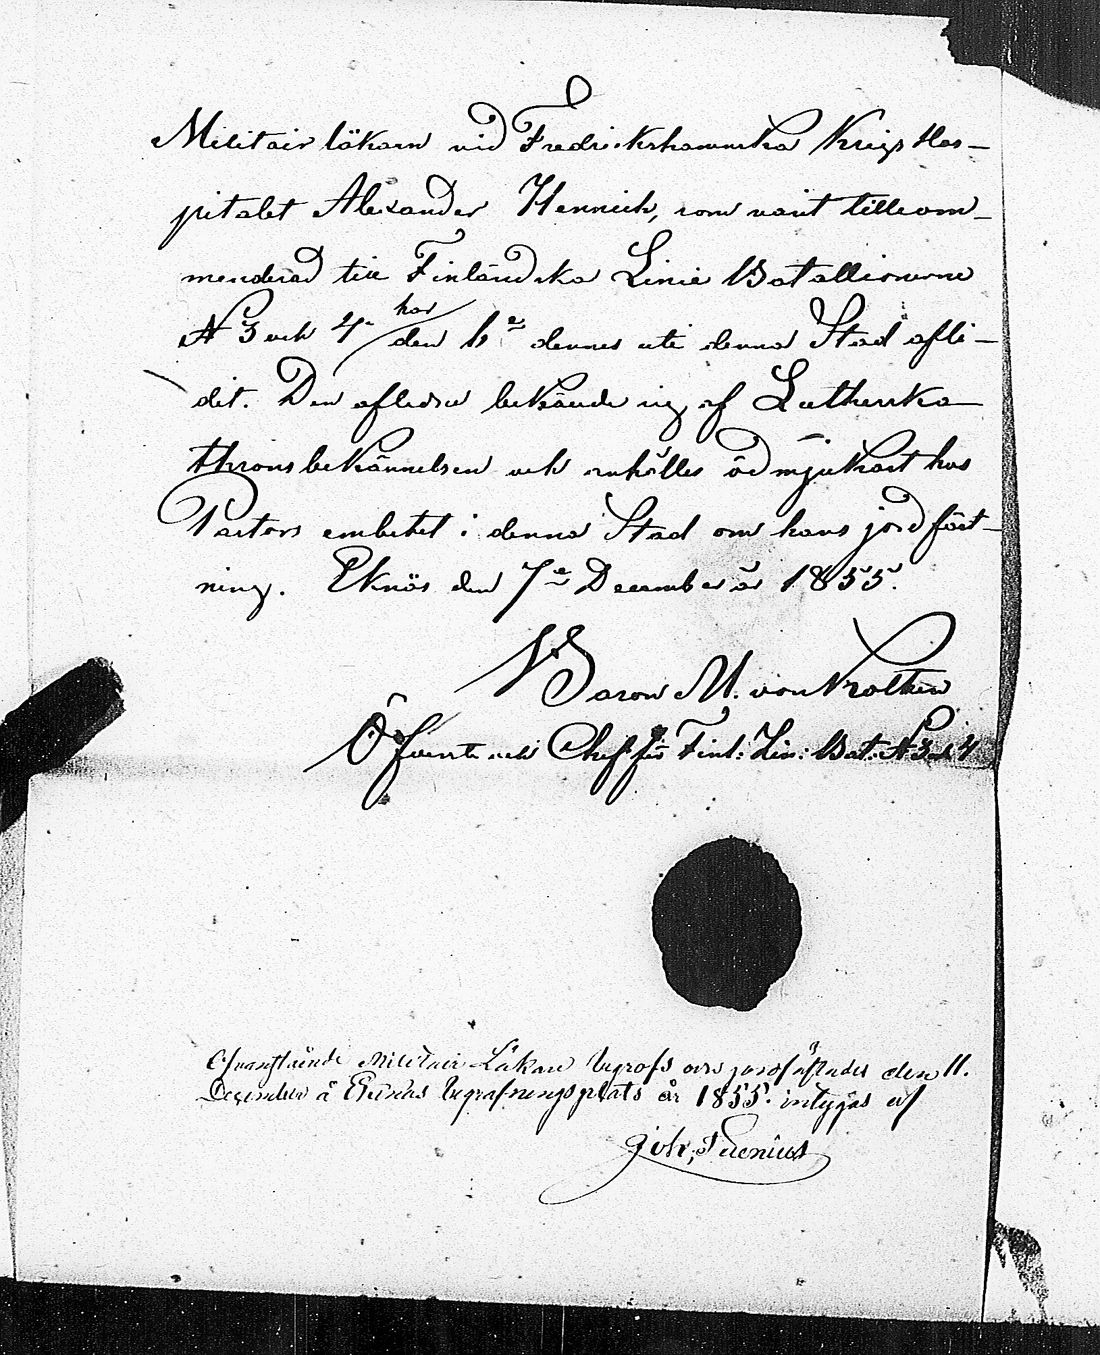 Militair läkarn vid Fredrikshamnska Krigs Hos-
pitalet Alexander Hennich, som varit tillcom-
menderad till Finländska Linie Batallionerne
N 3 och 4. har den 6te dennes uti denna Stad afli-
dit. Den aflidne bekände sig af Lutherska
throns bekännelsen och anhålles ödmjukast hos
Pastors embetet i denna Stad om hans jordfäst-
ning. Eknäs den 7de December år 1855.
Baron M. von
Öfverste och Chef för Finl: Lin: Bat: N 3 och 4
Ofvanstående Militair Läkare begrofs och jordfästades den 11.
December å Ekenäs begrafningsplats år 1855. intygas af
Joh,